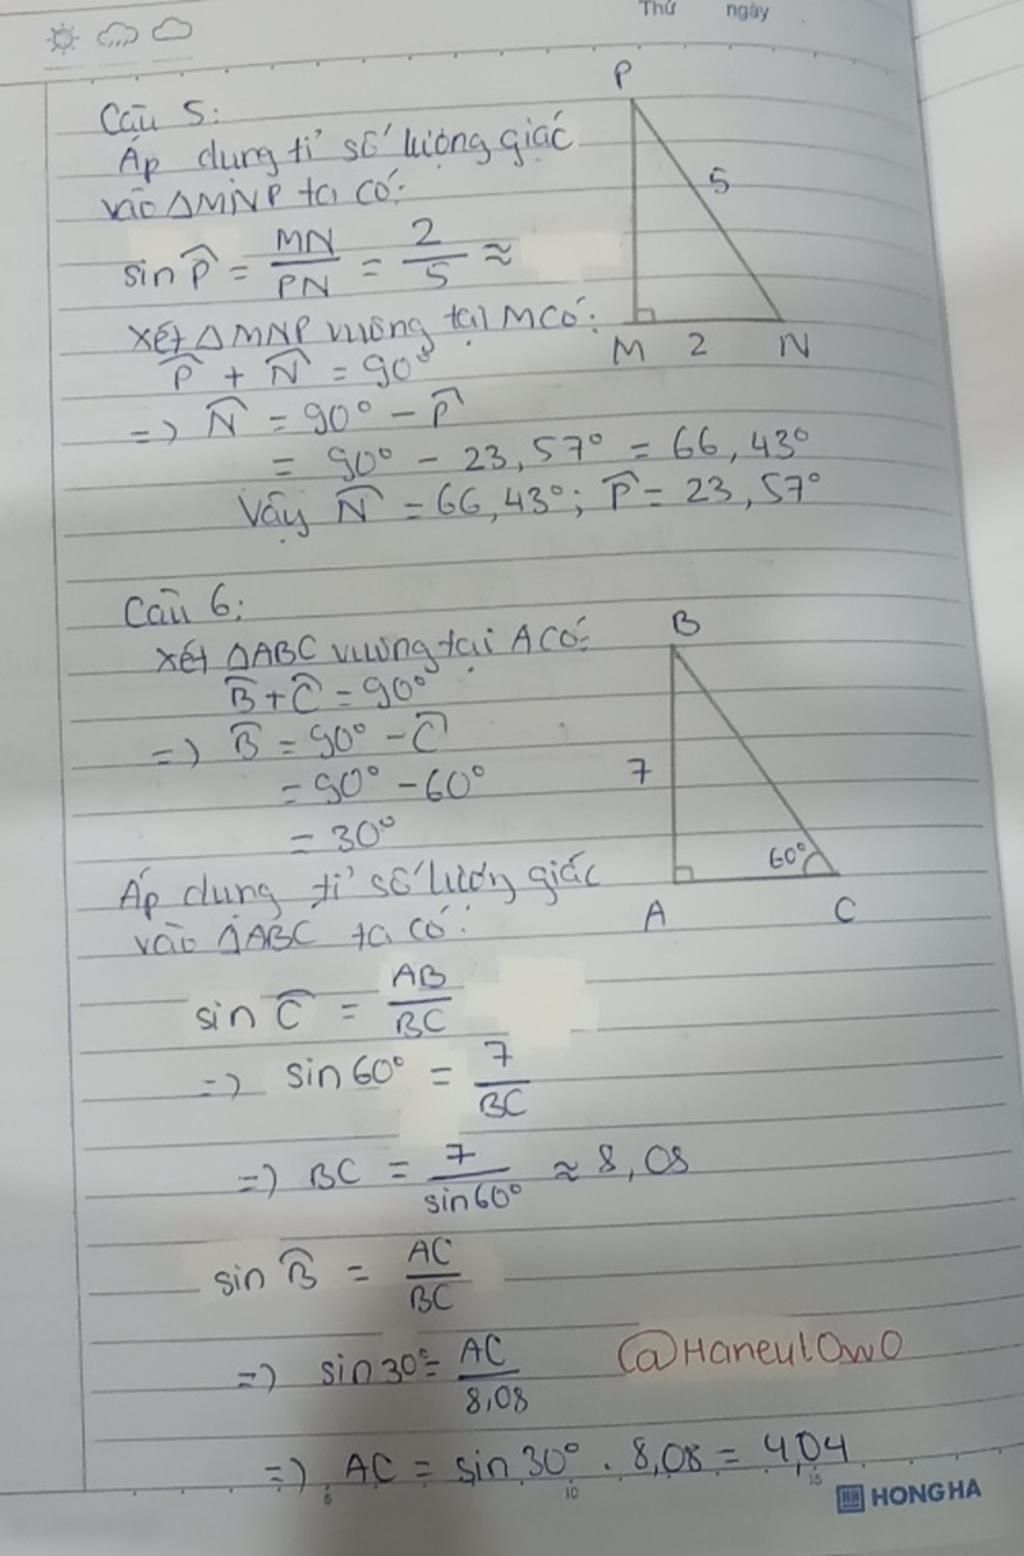 Thứ ngày
Câu 5:
Áp dụng tỉ số lượng giác
vào △MNP ta có:
sin P̂ = MN/PN = 2/5 ≈
Xét △MNP vuông tại M có:
P̂ + N̂ = 90°
=> N̂ = 90° - P̂
= 90° - 23,57° = 66,43°
Vậy N̂ = 66,43°; P̂ = 23,57°
P
5
M 2 N
Câu 6:
Xét △ABC vuông tại A có:
B̂ + Ĉ = 90°
=> B̂ = 90° - Ĉ
= 90° - 60°
= 30°
Áp dụng tỉ số lượng giác
vào △ABC ta có:
B
7
60°
A C
sin Ĉ = AB/BC
=> sin 60° = 7/BC
=> BC = 7/sin 60° ≈ 8,08
sin B̂ = AC/BC
=> sin 30° = AC/8,08
@HaneulOwO
=> AC = sin 30° . 8,08 = 4,04
5 10 15
HONG HA